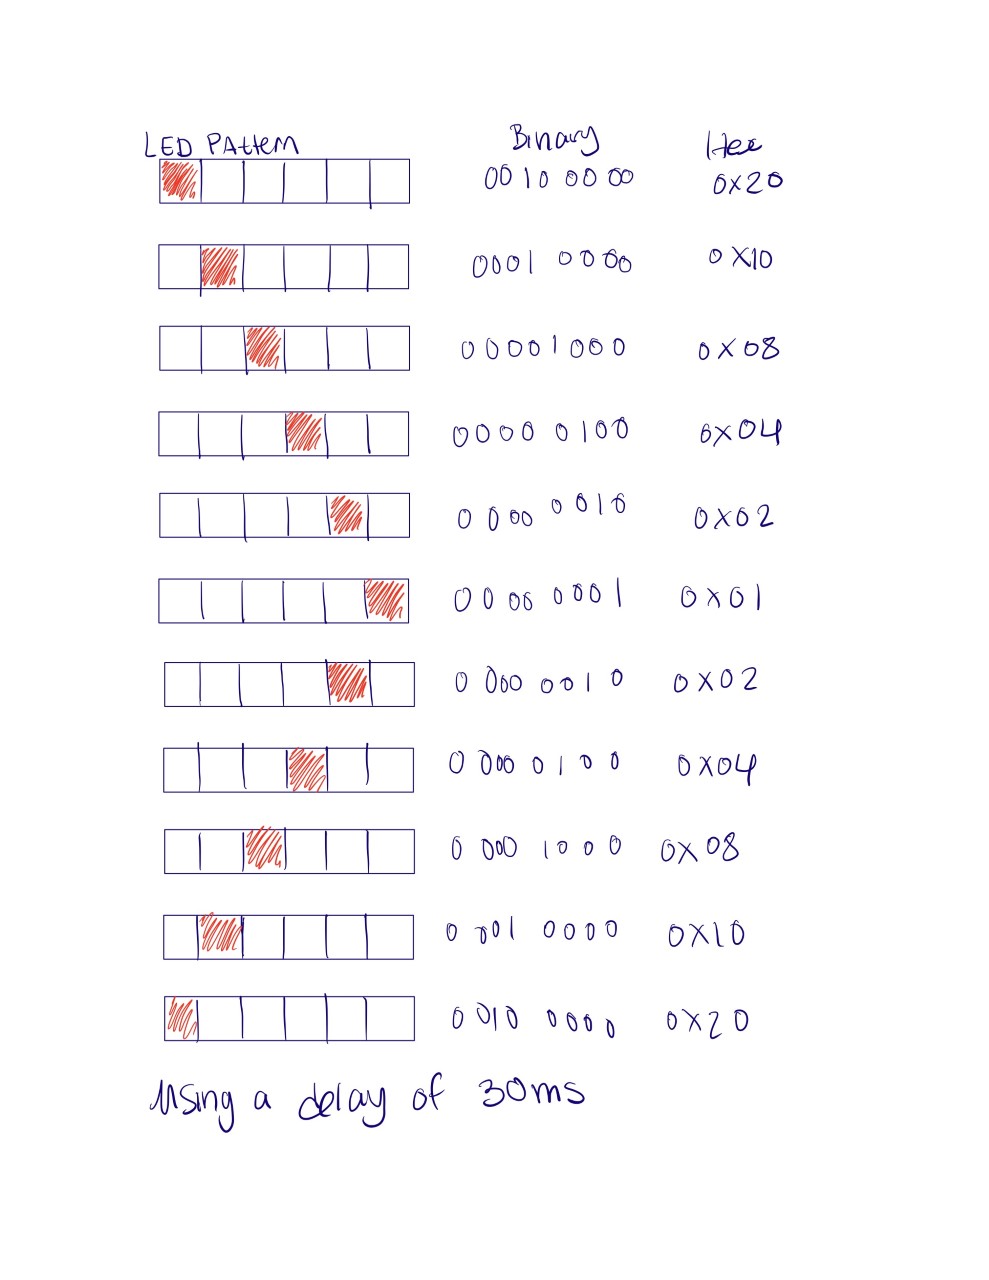 LED PAttern Binary Hex
0010 0000 0x20
0001 0000 0x10
00001000 0x08
0000 0100 0x04
0000 0010 0x02
0000 0001 0x01
0 000 0010 0x02
0 000 0100 0x04
0 000 1000 0x08
0 001 0000 0x10
0 010 0000 0x20
Using a delay of 30ms